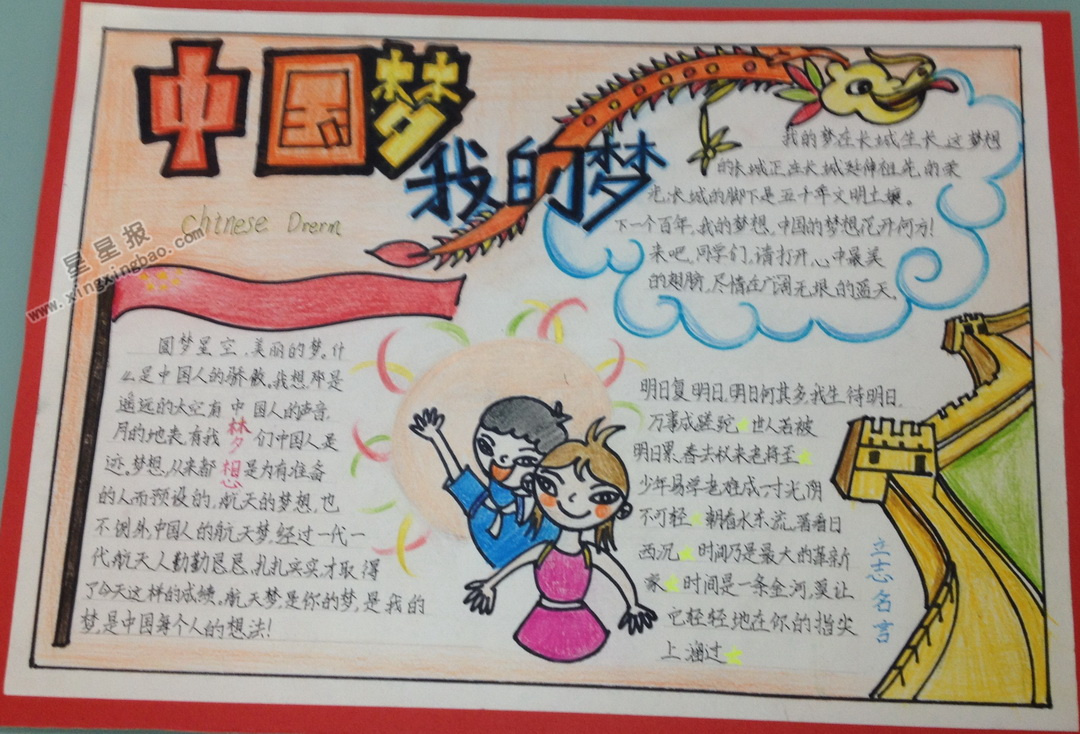 中国梦
我的梦
Chtnese Drerm
星星报
www.xingxingbao.com
我的梦在长城生长,这梦想
的长城正在长城延伸祖先的荣
光,长城的脚下是五千年文明土壤。
下一个百年,我的梦想,中国的梦想花开何方!
来吧,同学们,请打开心中最美
的翅膀,尽情在广阔无垠的蓝天。
圆梦星空,美丽的梦。什
么是中国人的骄傲,我想那是
遥远的太空有中国人的声音,
月的地表,有我们中国人足
迹。梦想,从来都是为有准备
的人而预设的,航天的梦想,也
不例外,中国人的航天梦,经过一代一
代航天人勤勤恳恳,扎扎实实,才取得
了今天这样的成绩。航天梦,是你的梦,是我的
梦,是中国每个人的想法!
梦想
明日复明日,明日何其多,我生待明日,
万事成蹉跎 世人若被
明日累,春去秋来老将至
少年易学老难成,一寸光阴
不可轻 朝看水东流,暮看日
西沉 时间乃是最大的革新
家 时间是一条金河,莫让
它轻轻地在你的指尖
上溜过
立志名言